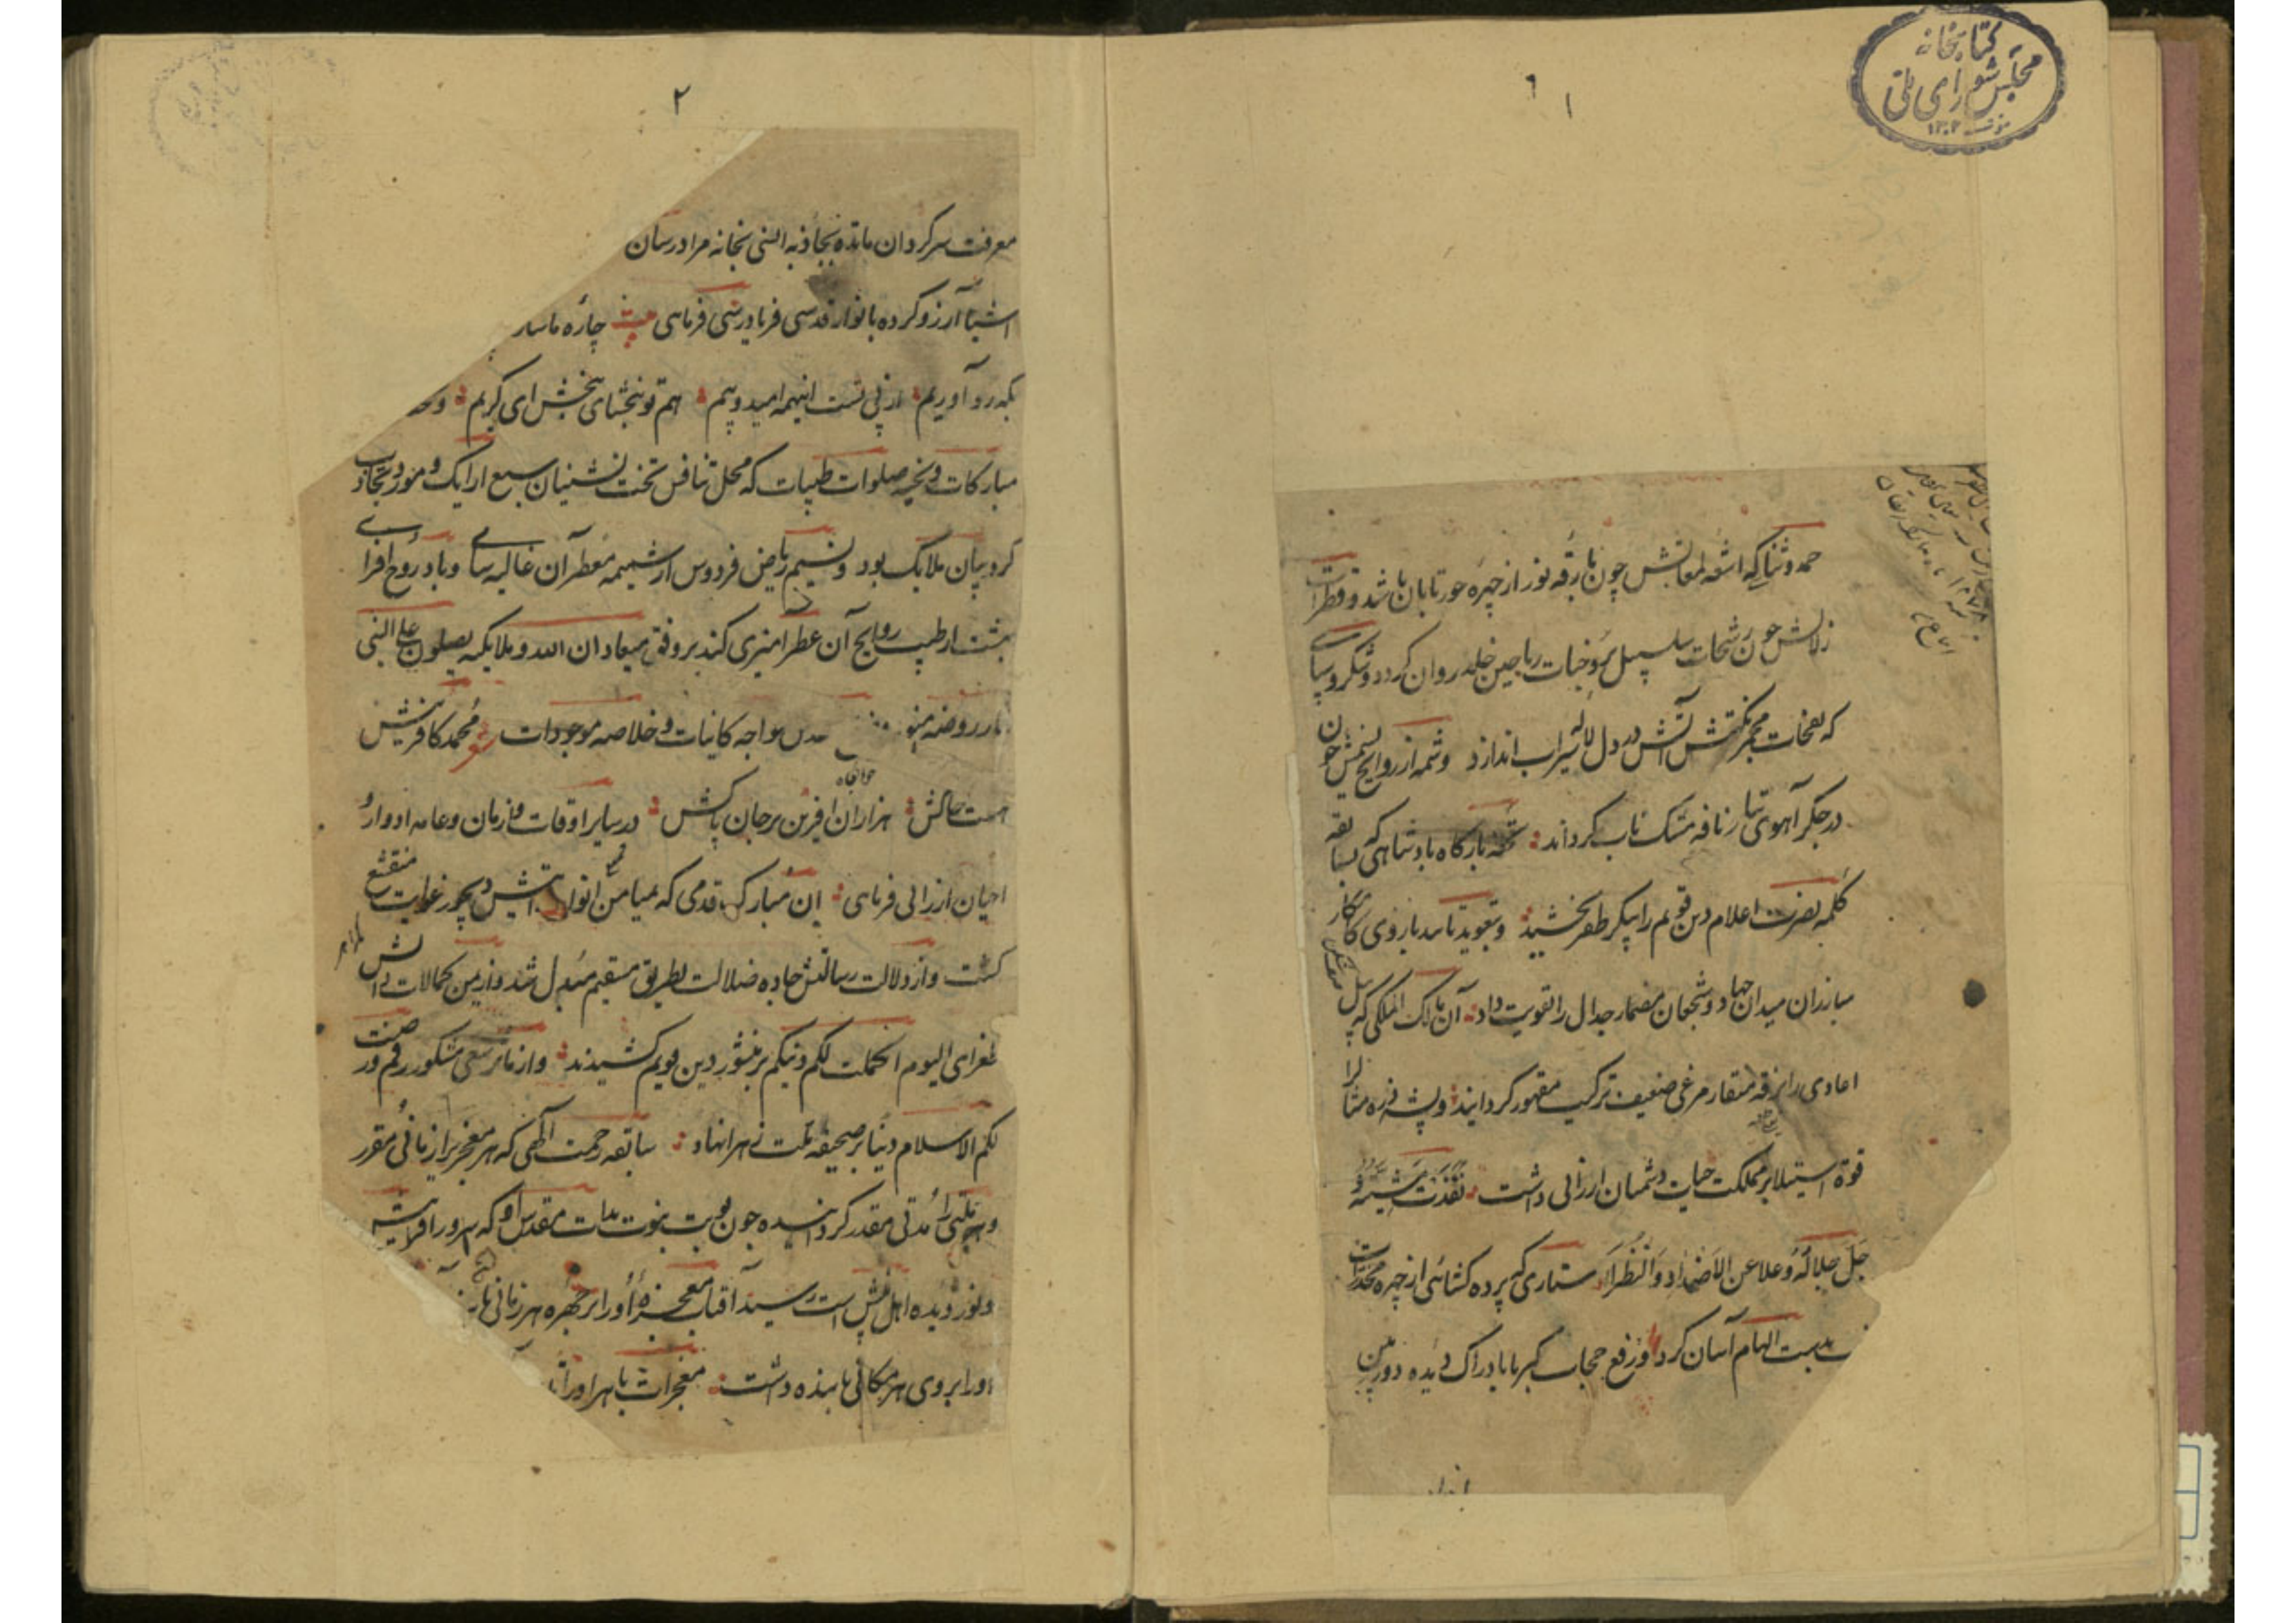 کتابخانه
مجلس شورای ملی
۱
حمد و ثنا که اشعه لمعاتش چون بارقه نور از چهره حور تابان باشد و قطرات
زلالش چون رشحات سلسبیل بر وجنات ریاحین خلد روان کردد و شکر و سپاسی
که نفحات مجمر نکهتش آتش در دل لاله سیراب اندازد و شمه از روایح نسیمش خون
در جکر آهوی تتار نافه مشک ناب کرداند تحفه بارکاه پادشاهی که بسابقه
کلمه نصرت اعلام دین قویم را پیکر ظفر بخشید و بتعوید تایید بازوی کامکار
مبارزان میدان جهاد و شجعان مضمار جدال را تقویت داد آن مالک الملکی که
اعادی را بزقه منقار مرغی ضعیف ترکیب مقهور کردانید و پشه ذره مثال را
قوة استیلا بر مملکت حیات دشمنان ارزانی داشت نفذت مشیته و
جل جلاله و علا عن الاضداد و النظراء ستاری که پرده کشائی از چهره مخدرات
بدست الهام آسان کرد و رفع حجاب کبریا بادراک دیده دوربین
۲
معرفت سرکردان مانده بجاذبه انسی بخانه مرادرسان
آرزو کرده بانوار قدسی فریادرسی فرمای بیت چاره ما ساز
بکه رو آوریم از پی تست اینهمه امید و بیم هم تو ببخشای و ببخش ای کریم
مبارکات و تحیه صلوات طیبات که محل تنافس تخت نشینان سبع ارایک و مورد تجاذب
کروبیان ملایک بود و نسیم ریاض فردوس از شمیمه معطر آن غالیه سای و باد روح افزای
بهشت از طیب روایح آن عطر امیزی کند بر وفق میعاد ان الله و ملایکته یصلون علی النبی
روضه خواجه کاینات و خلاصه موجودات شعر محمد کافرینش
هست خاکش هزاران افرین بر جان پاکش در سایر اوقات و ازمان و عامه ادوار و
احیان ارزانی فرمای آن مبارک قدمی که بمیامن انوار دیجور غوایت منقشع
کشت و از دلالت رسالتش جاده ضلالت بطریق مستقیم مبدل شد و از یمن کمالات
طغرای الیوم اکملت لکم دینکم بر منشور دین قویم کشیدند و از مآثر سعی مشکور رقم و رضیت
لکم الاسلام دینا بر صحیفه ملت زهرا نهاد سابقه رحمت الهی که هر معجز را زمانی مقرر
و هر را مدتی مقدر کردانیده چون نوبت نبوت بذات مقدس او که سرور افرینش
و نور دیده اهل بینش است رسید آفتاب معجزه او را بر چهره هر زمانی
او را بر روی هر مکانی پاینده داشت معجزات باهر او را